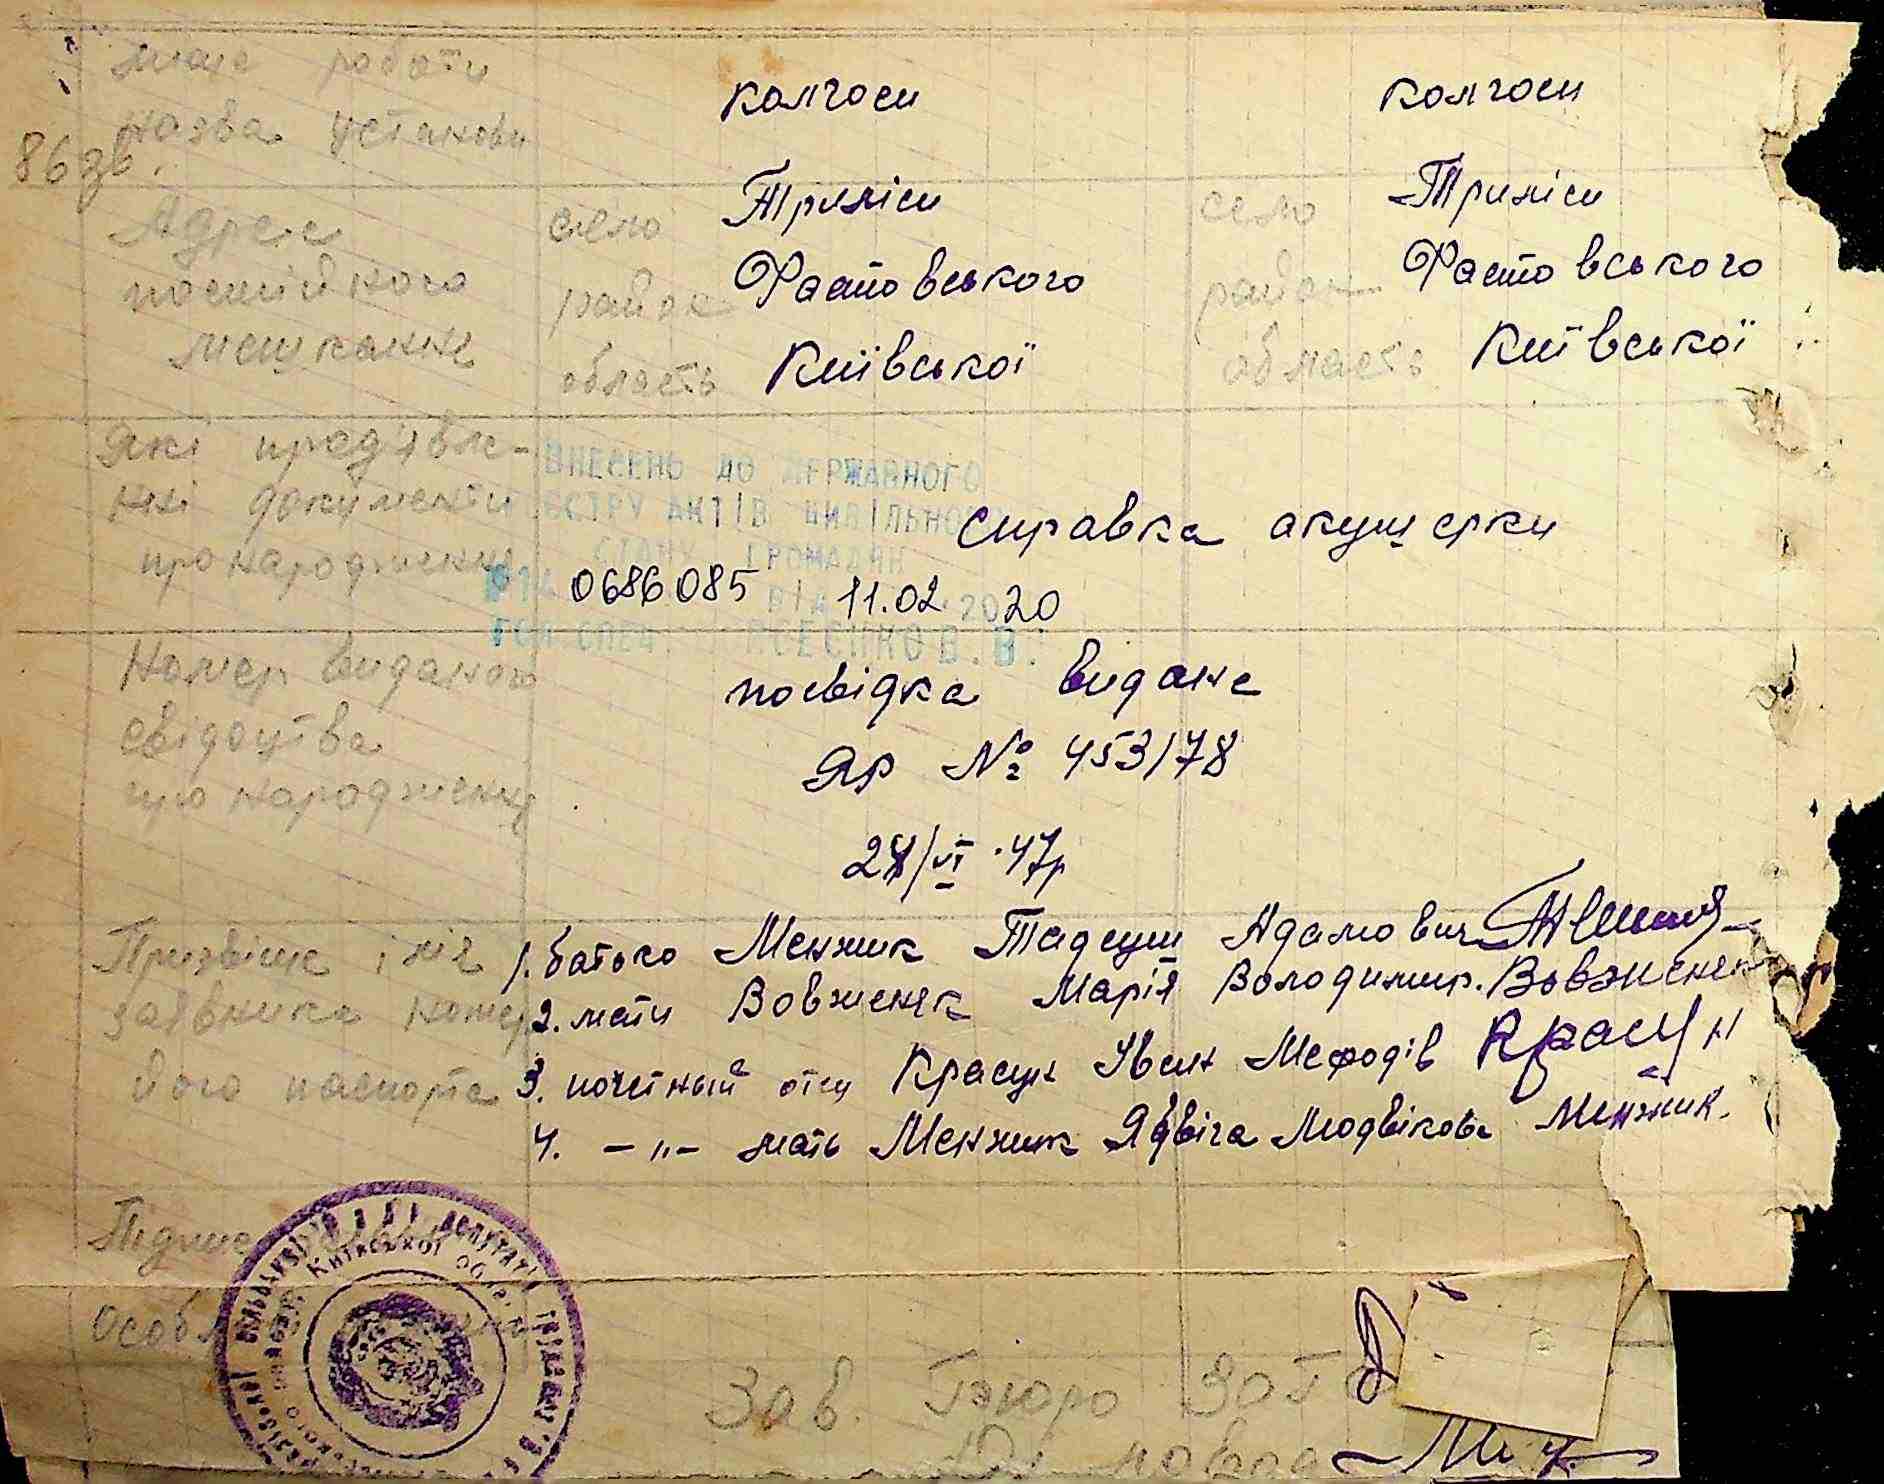 місце роботи
назва установи
колгосп колгосп
86 зв.
Адреса село Триліси село Триліси
постійного район Фастовського район Фастовського
мешкання область Київської область Київської
Які пред'явле-
нні документи
про народження
справка акушерки
ВНЕСЕНЬ ДО ДЕРЖАВНОГО
РЕЄСТРУ АКТІВ ЦИВІЛЬНОГО
СТАНУ ГРОМАДЯН
0686085 ВІД 11.02.2020
ГОЛ.СПЕЦ.
Номер виданого
свідоцтва
про народження
посвідка видана
ЯР № 453178
/VI.47р
Призвіще і ім'я
заявника номер
його паспорта
1. батько Менжик Тадеуш Адамович
2. мати Вовженяк Марія Володимир. Вовженяк
3. почетный отец Красун Іван Мефодів Красун
4. –„– мать Менжик Ядвіга Людвікова Менжик.
Підпис
Особл
Київської області
Зав. Бюро ЗАГС